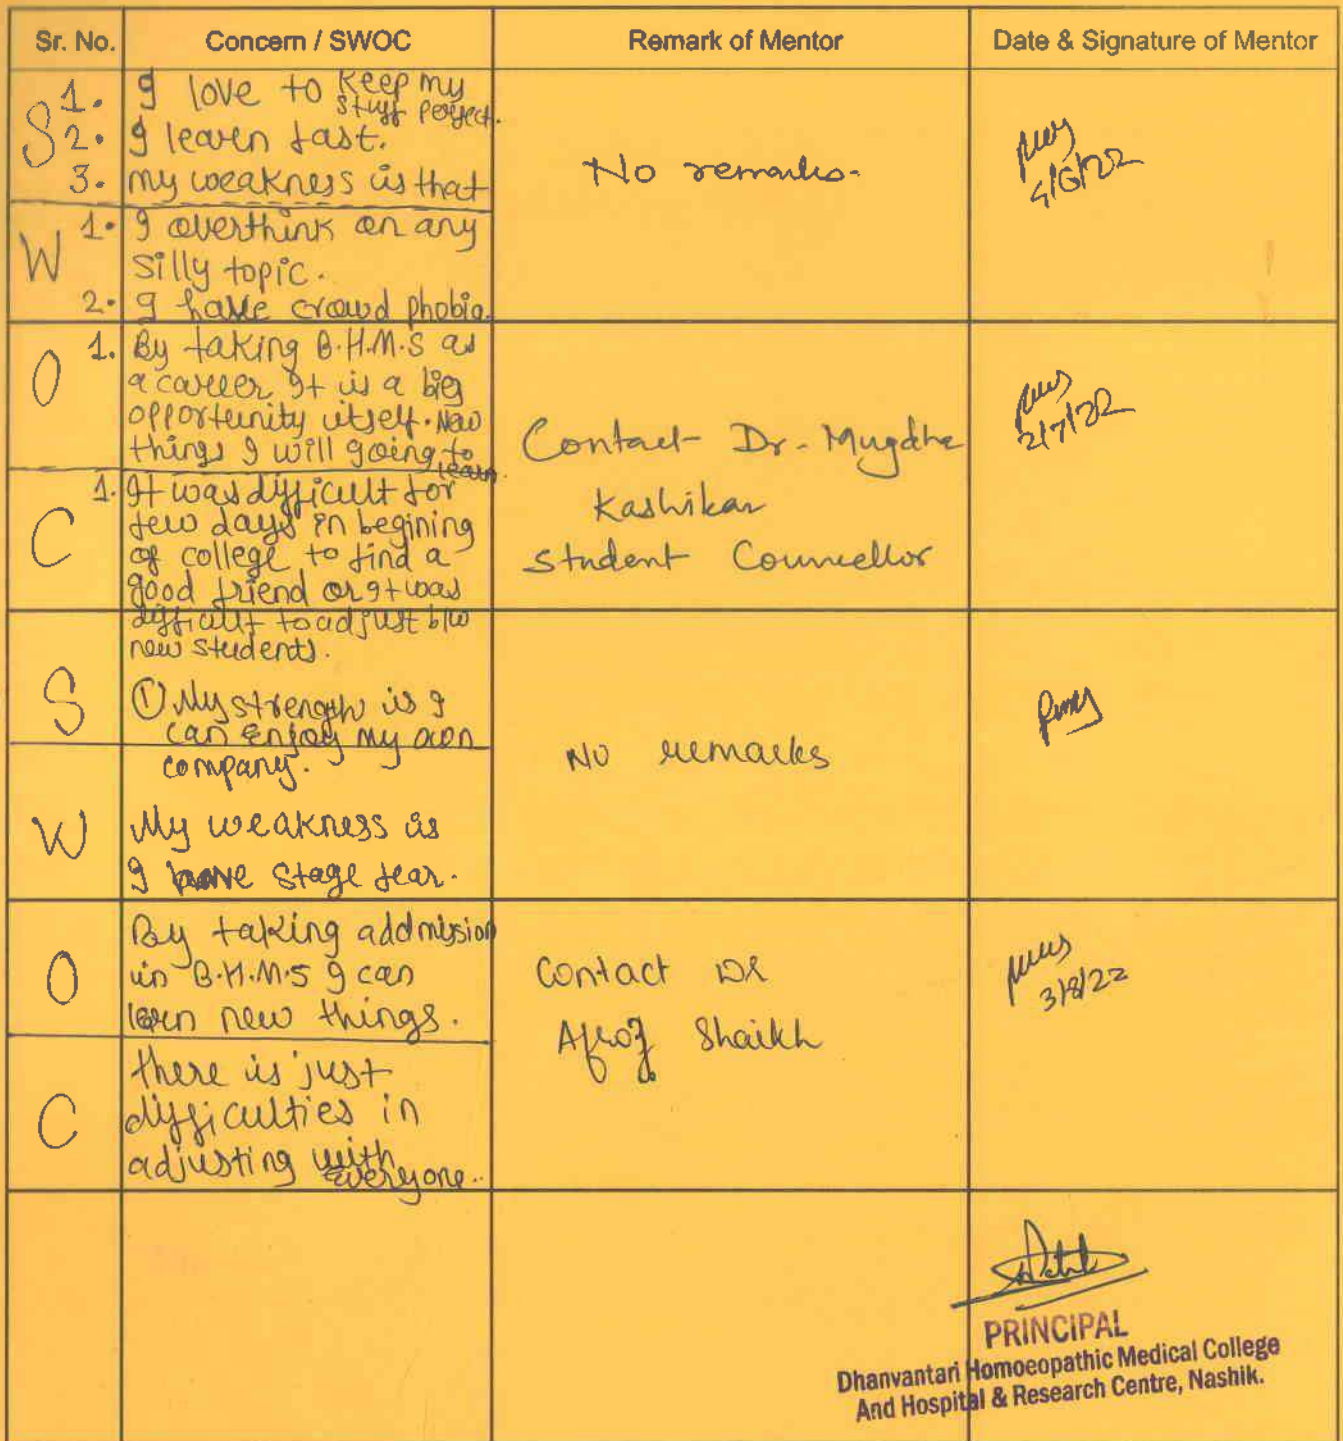 Sr. No. Concern / SWOC Remark of Mentor Date & Signature of Mentor
S 1. I love to keep my
stuff perfect.
2. I learn fast.
3. my weakness is that
No remarks.
W 1. I overthink on any
silly topic.
2. I have crowd phobia.
O 1. By taking B.H.M.S as
a career It is a big
opportunity itself. New
things I will going to
learn.
Contact Dr. Mugdha
Kashikar
Student Councellor
2/7/22
C 1. It was difficult for
few days in begining
of college to find a
good friend or It was
difficult to adjust b/w
new students.
S ① My strength is I
can enjoy my own
company.
No remarks
W My weakness is
I have stage fear.
O By taking addmission
in B.H.M.S I can
learn new things.
Contact DR
Afroz Shaikh
3/8/22
C there is just
difficulties in
adjusting with
everyone.
PRINCIPAL
Dhanvantari Homoeopathic Medical College
And Hospital & Research Centre, Nashik.